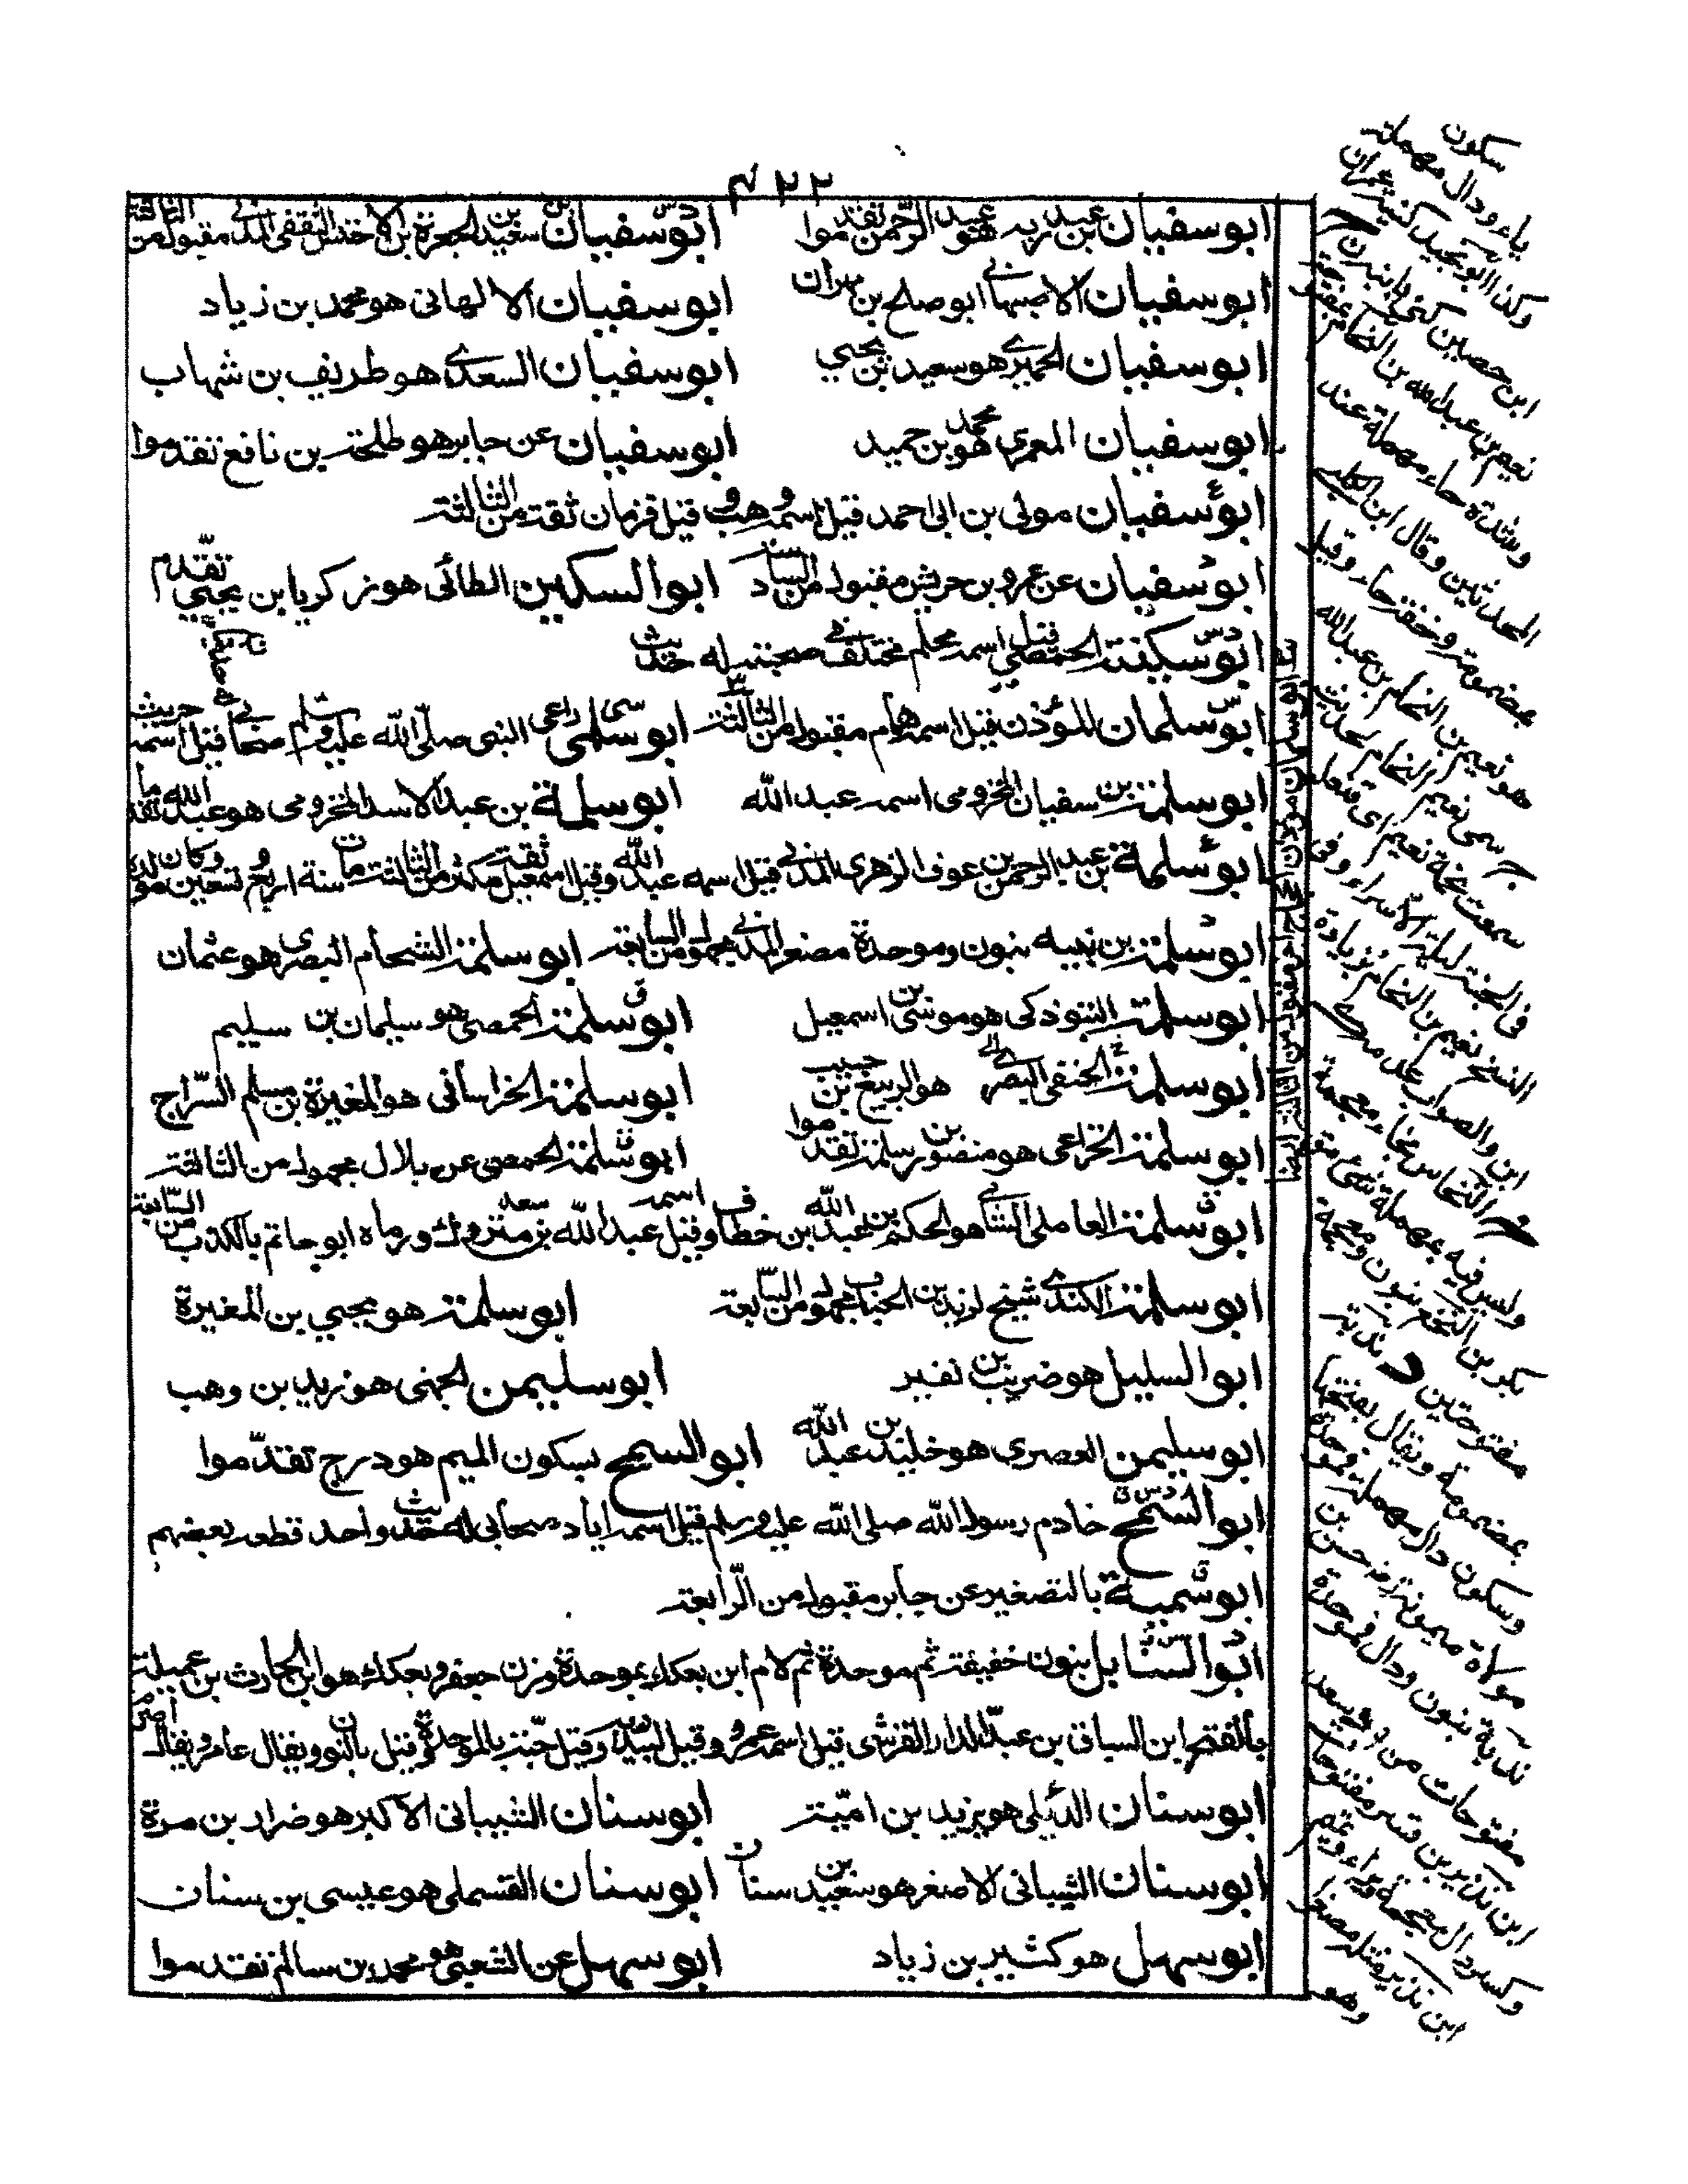 ٤٢٢
ابو سفيان بن عبد ربه هو عبد الرحمن تقدموا ابو سفيان بن سعيد بن المغيرة بن الاخنس الثقفى المدنى مقبول من الثالثة
ابو سفيان الاصبهانى ابو صالح بن مهران ابو سفيان الالهانى هو محمد بن زياد
ابو سفيان الحميرى هو سعيد بن يحيى ابو سفيان السعدى هو طريف بن شهاب
ابو سفيان المعمرى هو محمد بن حميد ابو سفيان عن جابر هو طلحة بن نافع تقدموا
ابو سفيان مولى بن ابى احمد قيل اسمه وهب وقيل قزمان ثقة من الثالثة
ابو سفيان عن عمرو بن حريش مقبول من السادسة ابو السكين الطائى هو زكريا بن يحيى تقدم
ابو سكينة الحمصى قيل اسمه محلم مختلف فى صحبته له حديث
ابو سلمان المؤذن قيل اسمه همام مقبول من الثالثة ابو سلمى راعى النبى صلى الله عليه وسلم صحابى قيل اسمه حريث
ابو سلمة بن سفيان المخزومى اسمه عبد الله ابو سلمة بن عبد الاسد المخزومى هو عبد الله تقدما
ابو سلمة بن عبد الرحمن بن عوف الزهرى المدنى قيل اسمه عبد الله وقيل اسمعيل ثقة مكثر من الثالثة مات سنة اربع وتسعين وكان مولده
ابو سلمة بن نبيه بنون وموحدة مصغر المدنى مجهول من السابعة ابو سلمة الشحام البصرى هو عثمان
ابو سلمة التبوذكى هو موسى بن اسمعيل ابو سلمة الحمصى هو سليمان بن سليم
ابو سلمة الحنفى البصرى هو الربيع بن حبيب ابو سلمة الخراسانى هو المغيرة بن مسلم السراج
ابو سلمة الخزاعى هو منصور بن سلمة تقدموا ابو سلمة الحمصى عن بلال مجهول من الثالثة
ابو سلمة العاملى الشامى هو الحكم بن عبد الله بن خطاف وقيل اسمه عبد الله بن سعد متروك ورماه ابو حاتم بالكذب من السابعة
ابو سلمة الكندى شيخ لزيد بن الحباب مجهول من السابعة ابو سلمة هو يحيى بن المغيرة
ابو السليل هو ضريب بن نفير ابو سليمن الجهنى هو زيد بن وهب
ابو سليمن العصرى هو خليد بن عبد الله ابو السمح بسكون الميم هو دراج تقدموا
ابو السمح خادم رسول الله صلى الله عليه وسلم قيل اسمه اياد صحابى له حديث واحد قطعه بعضهم
ابو سمية بالتصغير عن جابر مقبول من الرابعة
ابو السنابل بنون خفيفة ثم موحدة ثم لام ابن بعكك بموحدة وزن جعفر بعكك هو ابن الحارث بن عميلة
بالفتح ابن السباق بن عبد الدار القرشى قيل اسمه عمرو وقيل لبيد وقيل حبة بالموحدة وقيل بالنون ويقال عامر ويقال اصرم
ابو سنان الديلى هو يزيد بن امية ابو سنان الشيبانى الاكبر هو ضرار بن مرة
ابو سنان الشيبانى الاصغر هو سعيد بن سنان ابو سنان القسملى هو عيسى بن سنان
ابو سهل هو كثير بن زياد ابو سهل عن الشعبى هو محمد بن سالم تقدموا
سكون
ياء ودال مهملة
وكذا ابو نجيد كنية عمران
ابن حصين كنى بابنه
نعيم بن عبد الله بن النحام
وشدة حاء مهملة عند
المحدثين وقال ابن الكلبى
بضمومة وخفة حاء وقيل
هو نعيم بن النحام بن عبد الله
سمى نعيم النحام لحديث
سمعت نحمة نعيم اى سعلة
فى الجنة ليلة الاسراء وفى
النسخ نعيم بن النحام بزيادة
ابن والصواب
النخاس بخاء معجمة
وليس فيه بمهملة شىء
بكر بن النخع بنون ومعجمة
مفتوحتين ندبة
بضمومة ويقال بفتحها
وسكون دال مهملة فموحدة
مولاة ميمونة
ندبة بنون ودال فموحدة
مفتوحات من
ابن نذير بن قسر مفتوحة
وكسر ذال معجمة وراء
ابن نذير مثله مصغرا
وهو